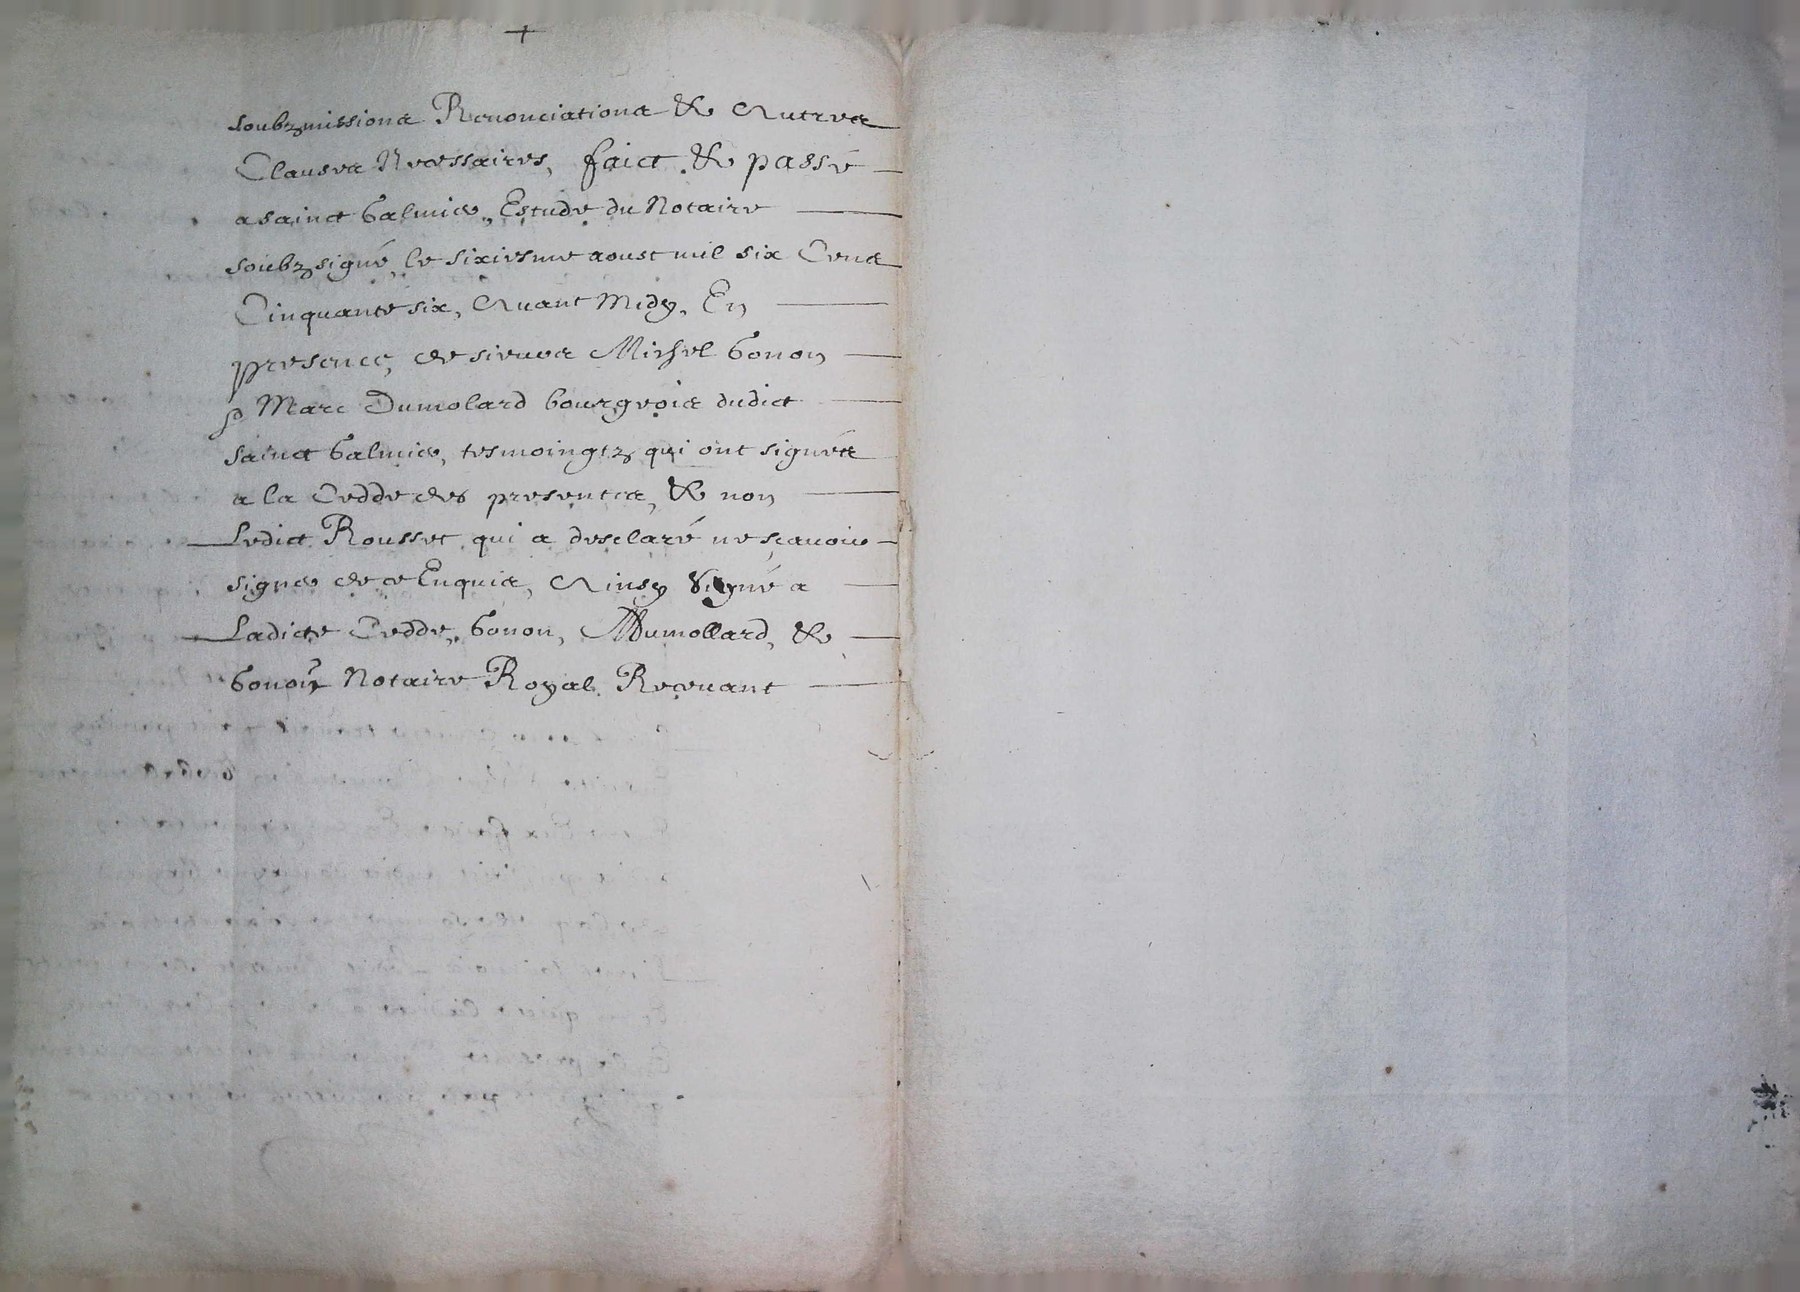 soubzmissions Renonciations & Autres
Clauses Necessaires, faict & passé
a sainct Galmier, Estude du Notaire
soubzsigné, le sixiesme aoust mil six Cens
Cinquante six, Avant Midy, En
presence, de sieurs Michel Gonon
& Marc Dumolard bourgeois dudict
sainct Galmier, tesmoingtz qui ont signés
a la Cedde des presentes, & non
Ledict Rousset qui a desclaré ne sçavoir
signer de ce Enquis, Ainsy Signé a
Ladicte Cedde, Gonon, MDumollard, &
Gonon Notaire Royal Recevant